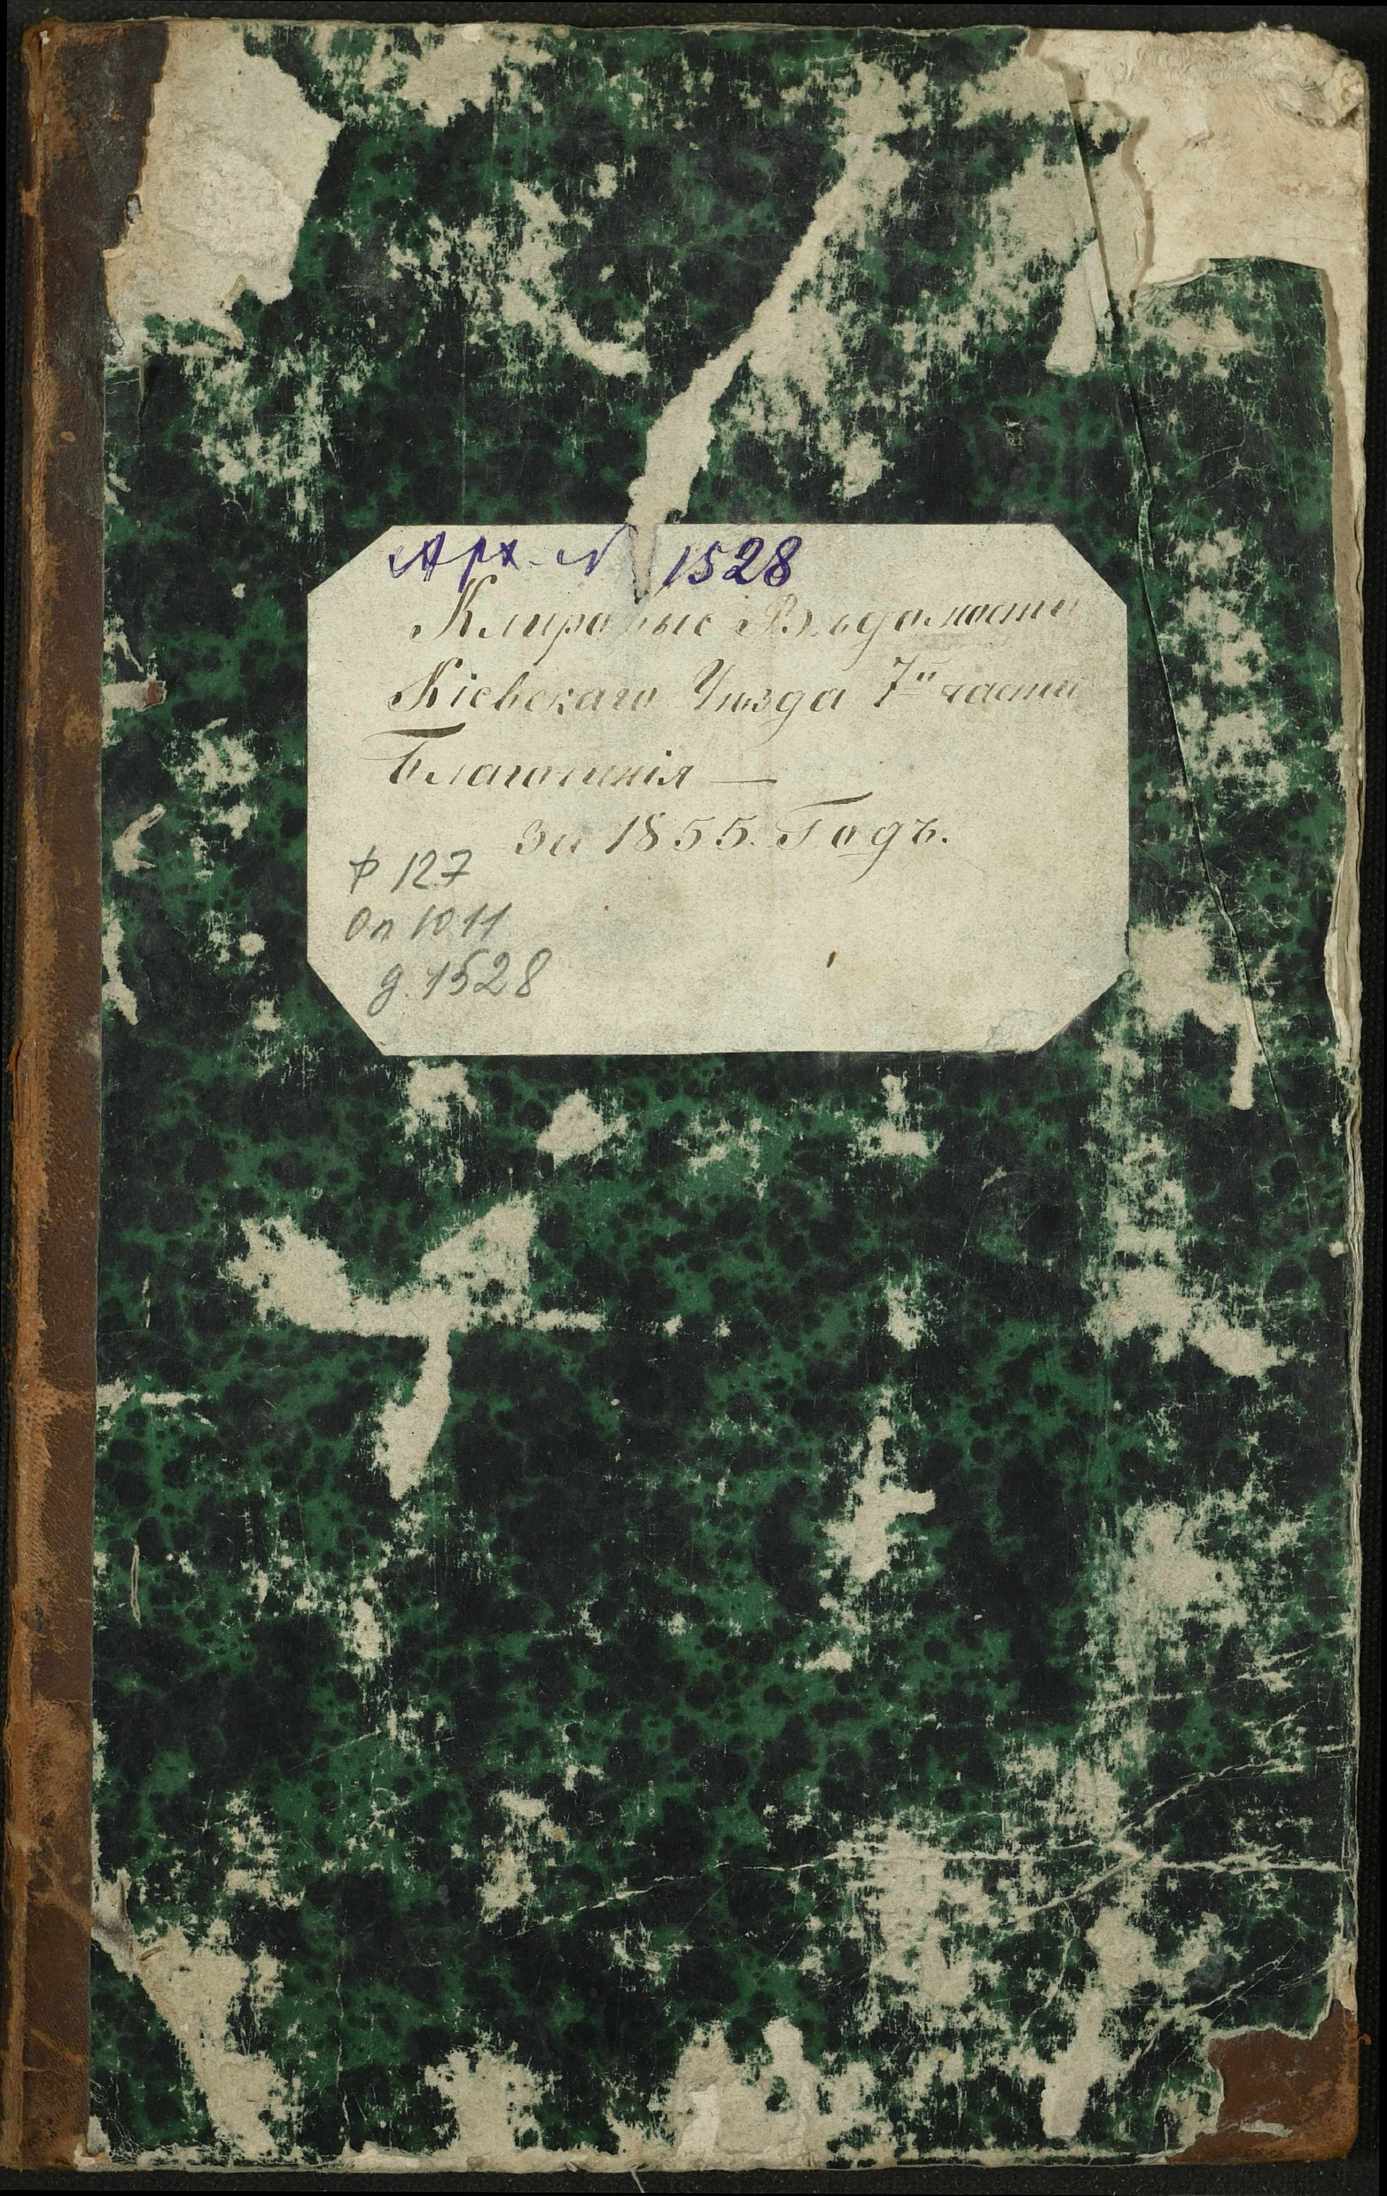 Арх. № 1528
Клировые Вѣдомости
Кіевскаго Уѣзда 7й части
Благочинія —
за 1855. Годъ.
Ф 127
Оп 1011
д. 1528